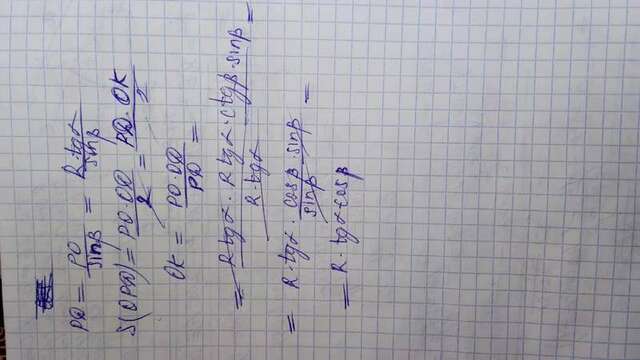 PD = PO/sinβ = R·tgα/sinβ
S(OPD) = PO·OD/2 = PD·OK/2
OK = PO·OD/PD =
= R·tgα·R·tgα·ctgβ·sinβ/R·tgα =
= R·tgα·cosβ·sinβ/sinβ =
= R·tgα·cosβ